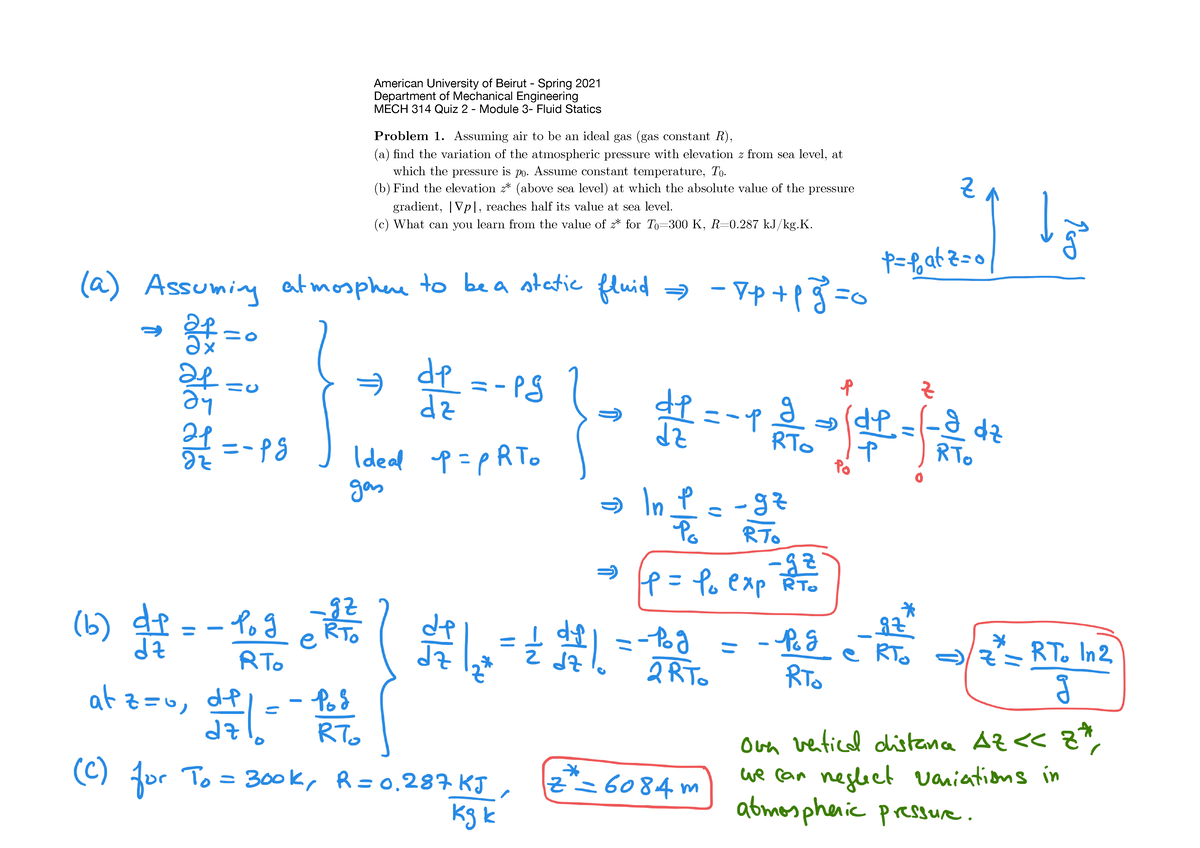 American University of Beirut - Spring 2021
Department of Mechanical Engineering
MECH 314 Quiz 2 - Module 3- Fluid Statics
Problem 1. Assuming air to be an ideal gas (gas constant R),
(a) find the variation of the atmospheric pressure with elevation z from sea level, at
which the pressure is p₀. Assume constant temperature, T₀.
(b) Find the elevation z* (above sea level) at which the absolute value of the pressure
gradient, |∇p|, reaches half its value at sea level.
(c) What can you learn from the value of z* for T₀=300 K, R=0.287 kJ/kg.K.
z
g⃗
p=p₀ at z=0
(a) Assuming atmosphere to be a static fluid ⇒ -∇p + ρg⃗ = 0
⇒ ∂p/∂x = 0
∂p/∂y = 0
∂p/∂z = -ρg
⇒ dp/dz = -ρg
Ideal gas p = ρRT₀
⇒ dp/dz = -p g/RT₀ ⇒ ∫_{p₀}^{p} dp/p = ∫_{0}^{z} -g/RT₀ dz
⇒ ln p/p₀ = -gz/RT₀
⇒ p = p₀ exp -gz/RT₀
(b) dp/dz = - p₀g/RT₀ e^{-gz/RT₀}
at z=0, dp/dz|₀ = - p₀g/RT₀
dp/dz|_{z*} = 1/2 dp/dz|₀ = -p₀g/2RT₀ = - p₀g/RT₀ e^{-gz*/RT₀} ⇒ z* = RT₀ ln2/g
(c) for T₀ = 300K, R = 0.287 KJ/Kg K, z* = 6084 m
Over vertical distance Δz << z*,
we can neglect variations in
atmospheric pressure.